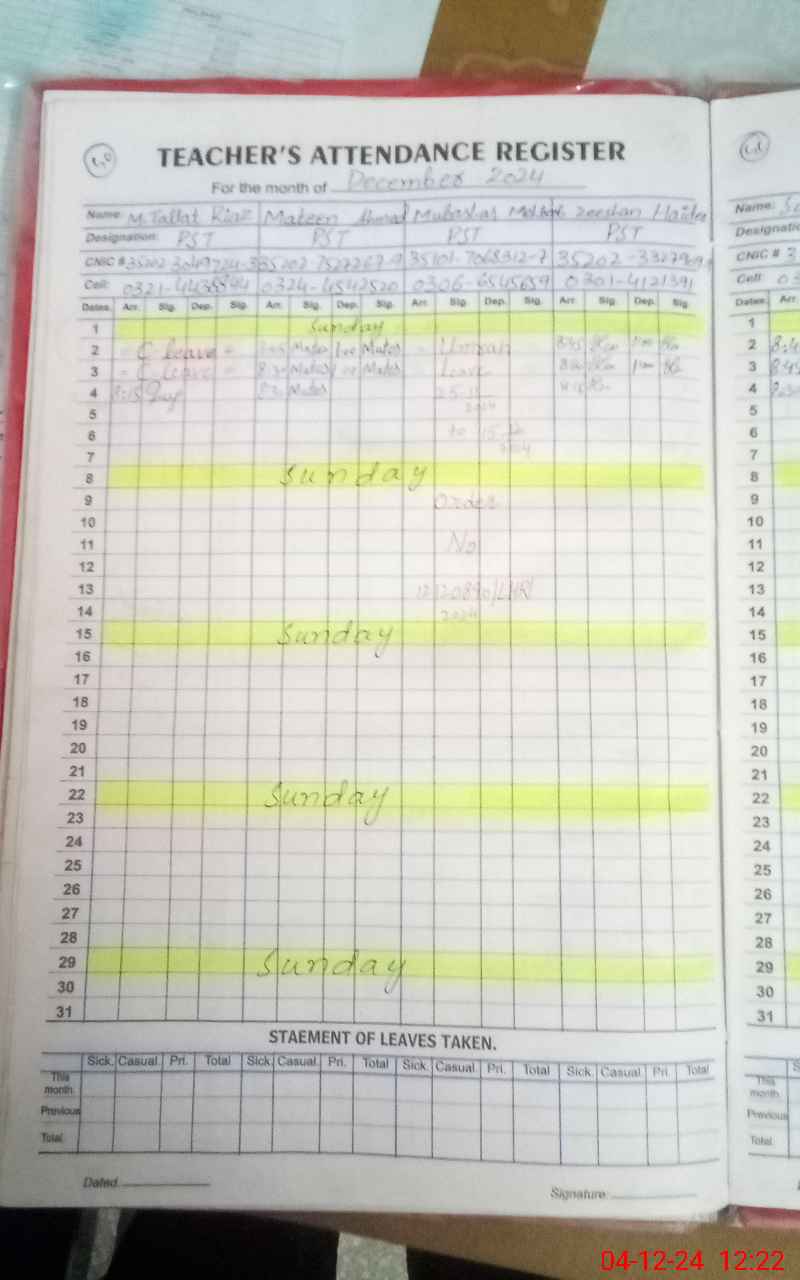 TEACHER'S ATTENDANCE REGISTER
For the month of December 2024
Name: M. Tallat Riaz Mateen Ahmad Mubashar Zeeshan Haider Name:
Designation: PST PST PST PST
CNIC # 35202- 35202-7527267-9 35101-7068312-7 35202- CNIC # 3
Cell: 0321-4438594 0324-4542520 0306-6545659 0301-4121391 Cell: 03
Dates. Arr. Sig. Dep. Sig. Arr. Sig. Dep. Sig. Arr. Sig. Dep. Sig. Arr. Sig. Dep. Sig. Dates. Arr.
1 Sunday 1
2 - C leave - Mateo 1:00 Mateo - Umrah 8:45 2 8:4
3 - C leave - 8:30 Mateo Mateo Leave 3 8:45
4 8:15 Mateo 25-11 4
2024
5 5
6 to 15 12 6
2024
7 7
8 Sunday 8
9 Order 9
10 10
11 No 11
12 12
13 /LHR/ 13
14 2024 14
15 Sunday 15
16 16
17 17
18 18
19 19
20 20
21 21
22 Sunday 22
23 23
24 24
25 25
26 26
27 27
28 28
29 Sunday 29
30 30
31 31
STAEMENT OF LEAVES TAKEN.
Sick. Casual. Pri. Total Sick. Casual. Pri. Total Sick. Casual. Pri. Total Sick. Casual. Pri. Total S
This month. This month.
Previous Previous
Total. Total.
Dated. Signature:
04-12-24 12:22